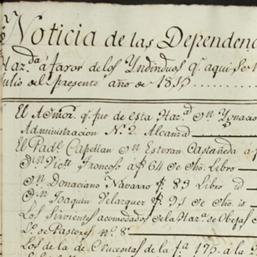 Noticia de las Dependenc
Haz.da a favor de los Yndividuos q.e aqui se
Julio del presente año de 1815
El Señor q.e fue de esta Haz.d D.n Ygnacio
Administracion N.o 2
El Pad.e Capellan D.n Estevan Castañeda a f
D.n Tronco a f 64 de dho Libro
D.n Donaciano Navarro f 83 Libro id
D.n Joaquin Velazquez f 95 de dho
Los Sirvientes acomodados de la Haz.a de Obejas
de Pastores n.o 8
Los de la de Cuentas de la f.a 175 a la